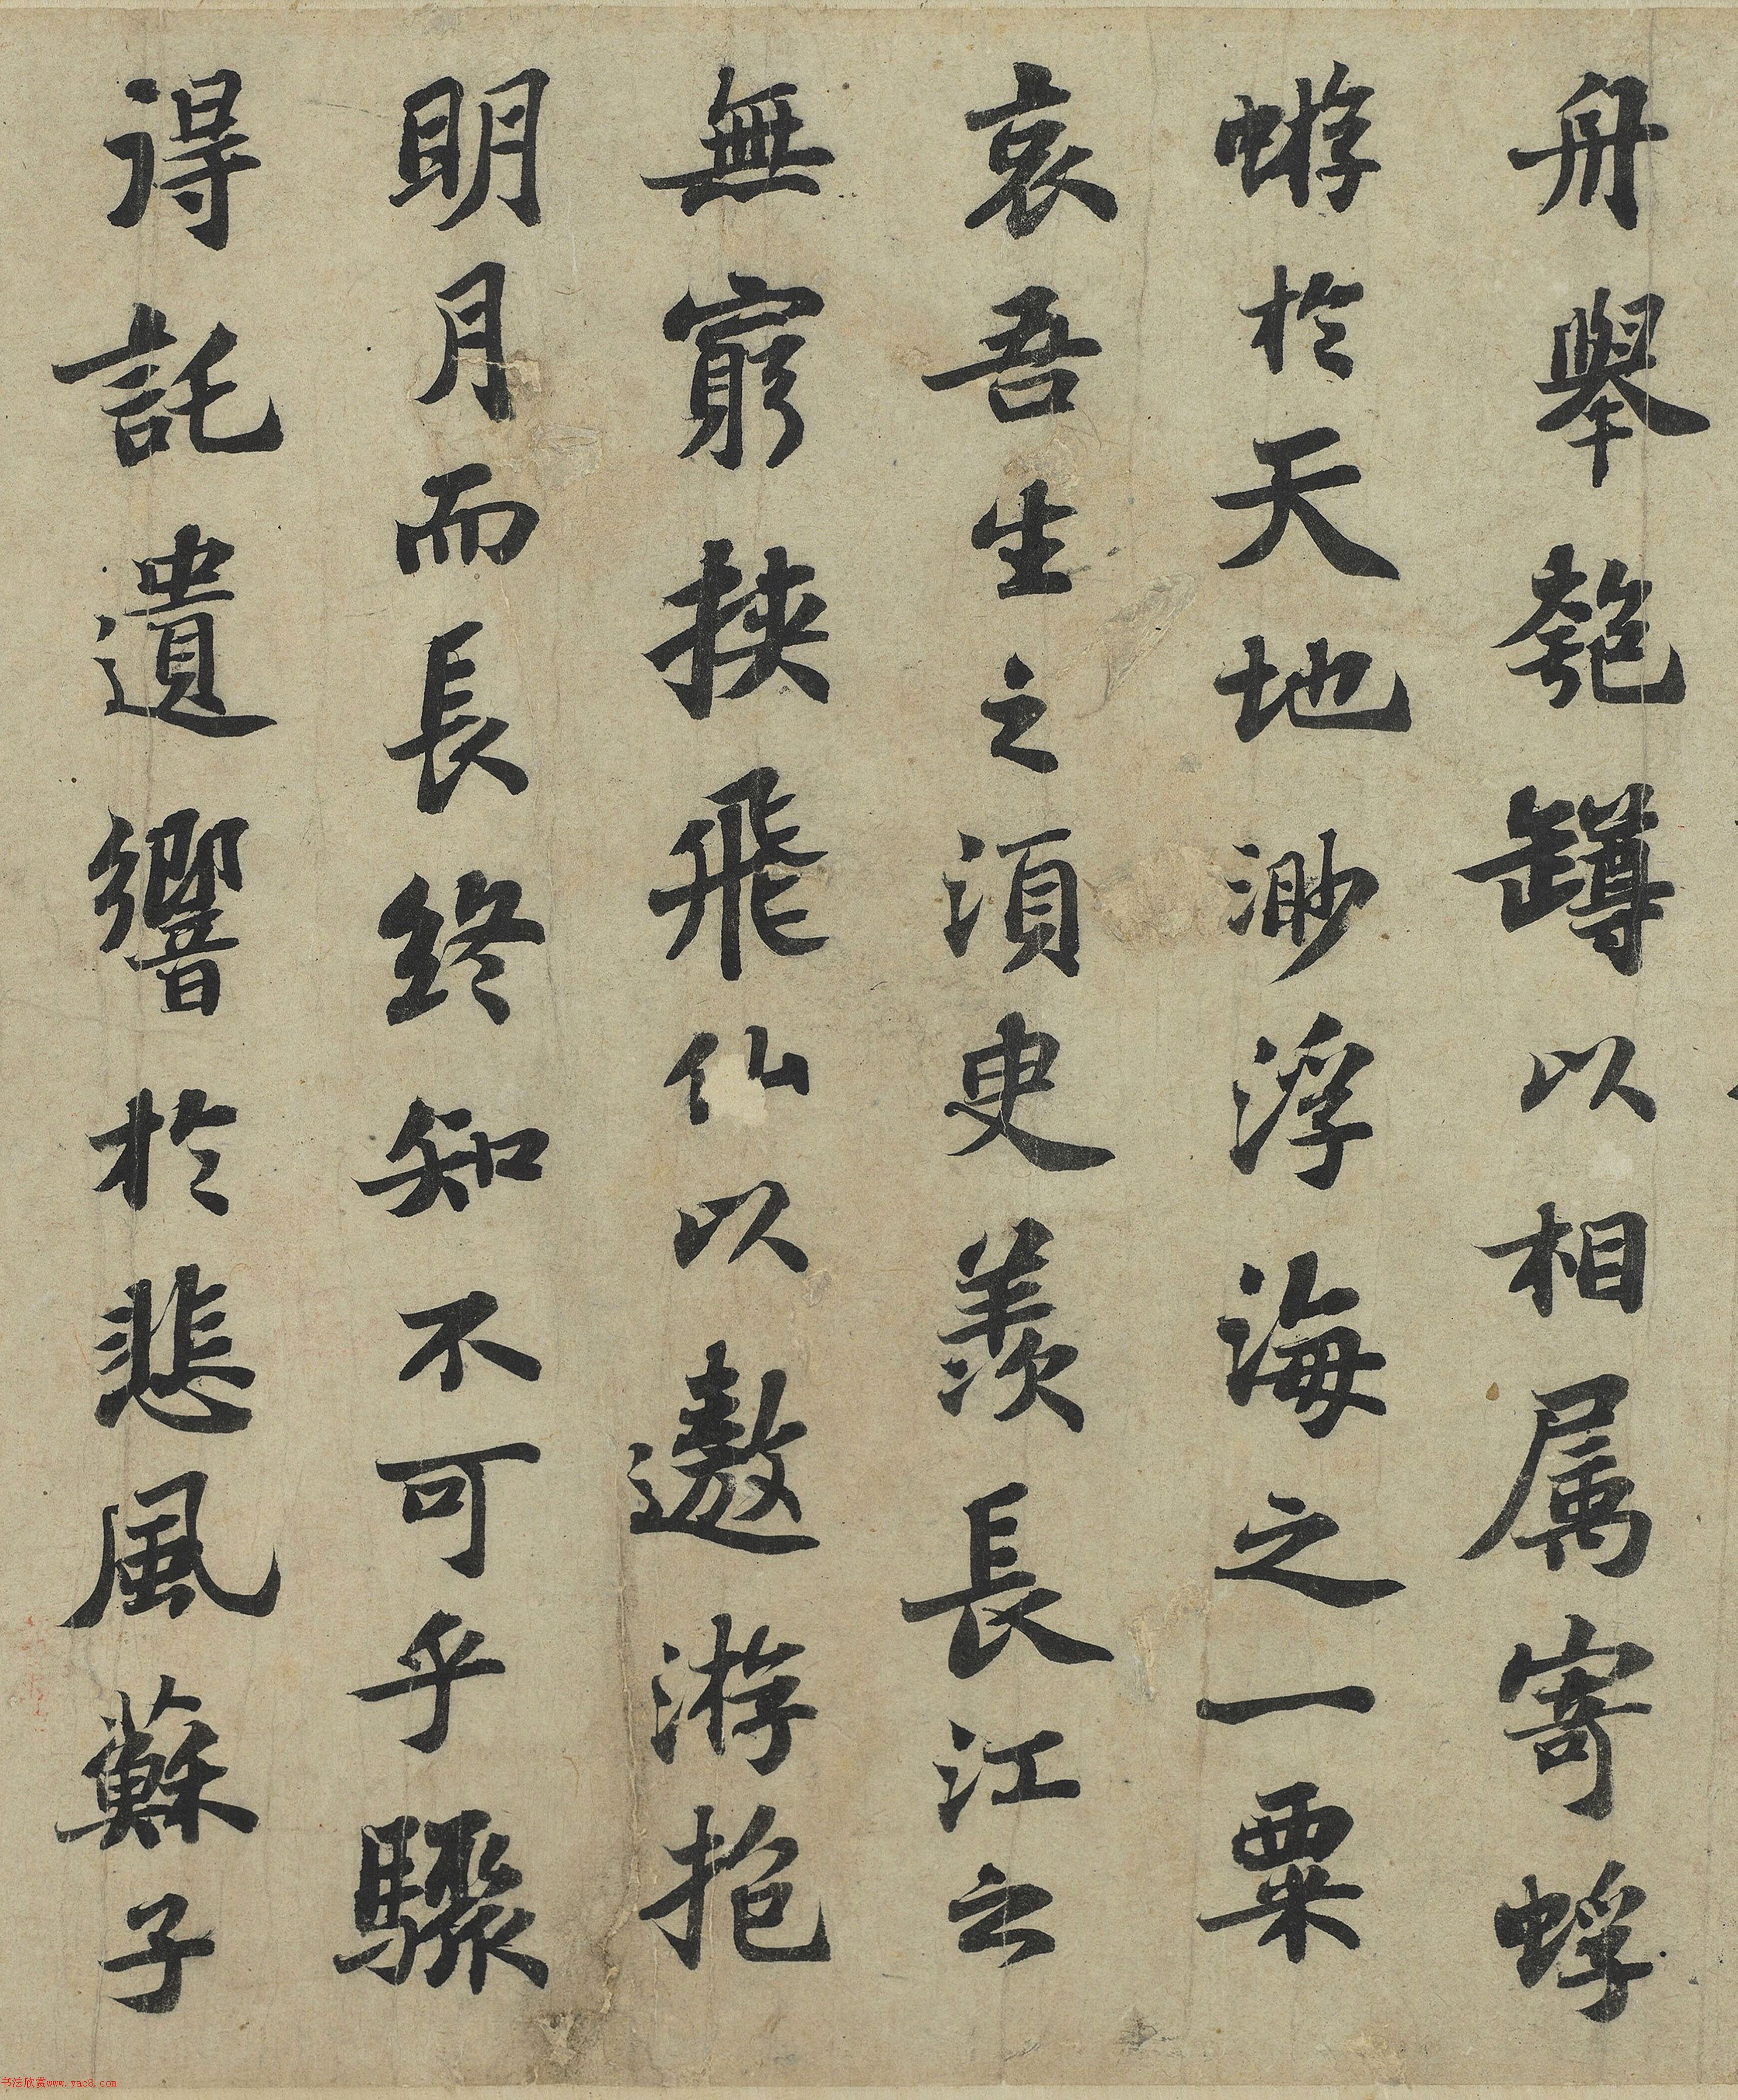 舟舉匏罇以相属寄蜉
蝣於天地渺浮海之一粟
哀吾生之須臾羨長江之
無窮挾飛仙以遨游抱
明月而長終知不可乎驟
得託遺響於悲風蘇子
书法欣赏www.yac8.com